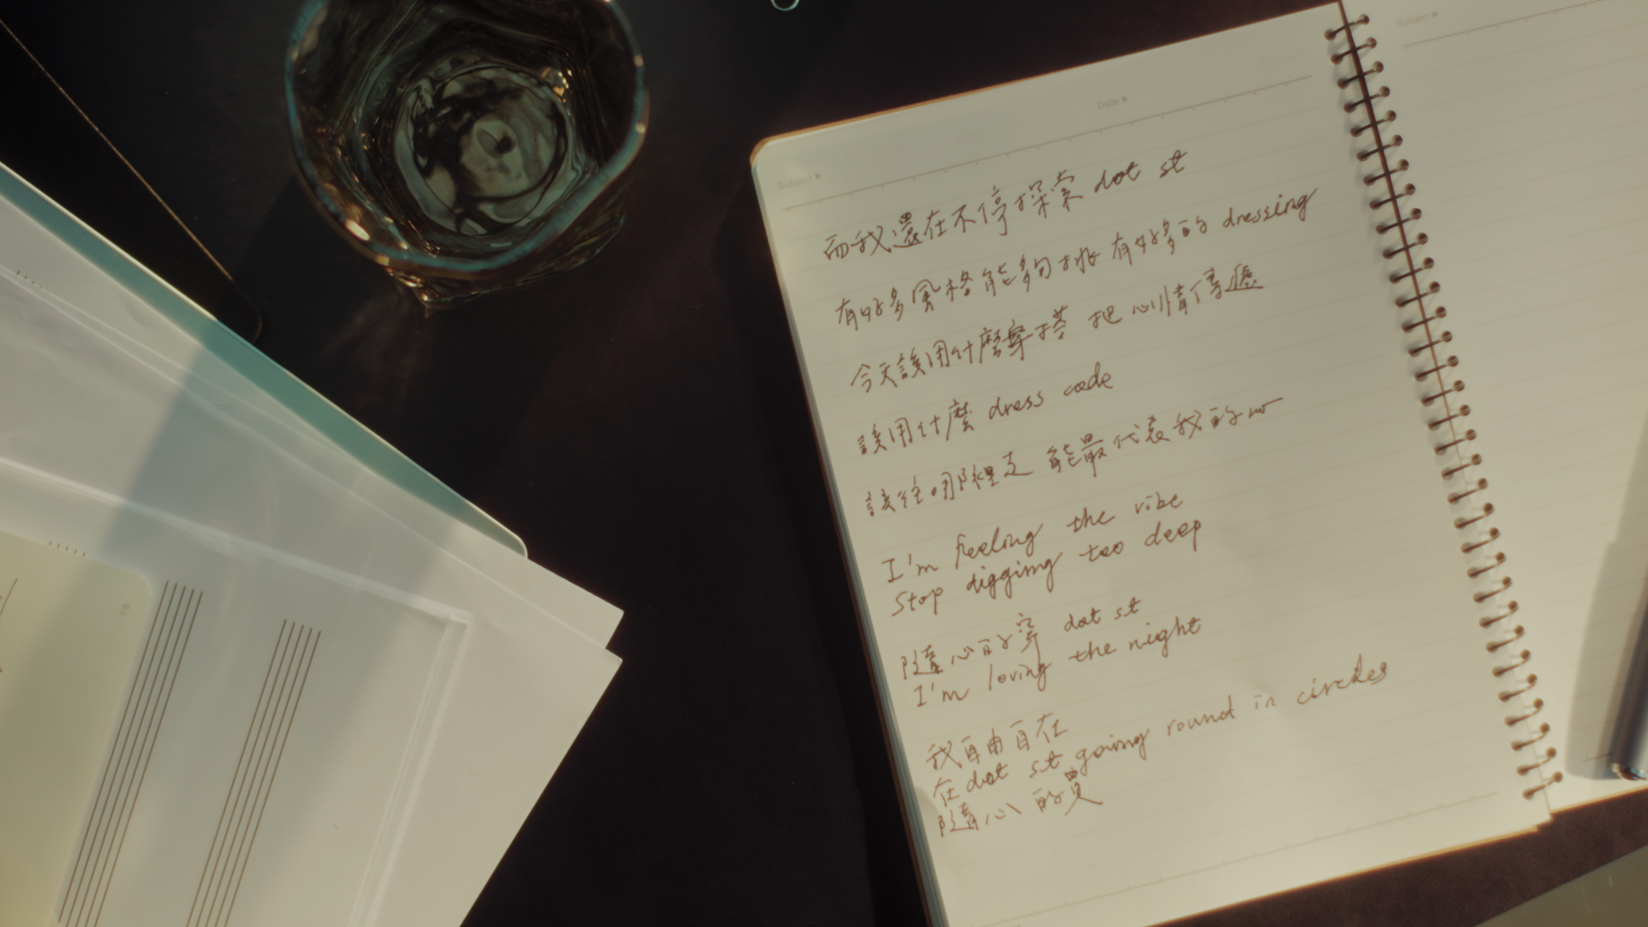 Subject ▸
Date ▸
而我還在不停探索 dot st
有好多風格能夠挑 有好多的 dressing
今天該用什麼穿搭 把心情傳遞
該用什麼 dress code
該往哪裡走 能最代表我的
I'm feeling the vibe
Stop digging too deep
隨心的穿 dot st
I'm loving the night
我自由自在
在dot st going round in circles
隨心的
Subject ▸